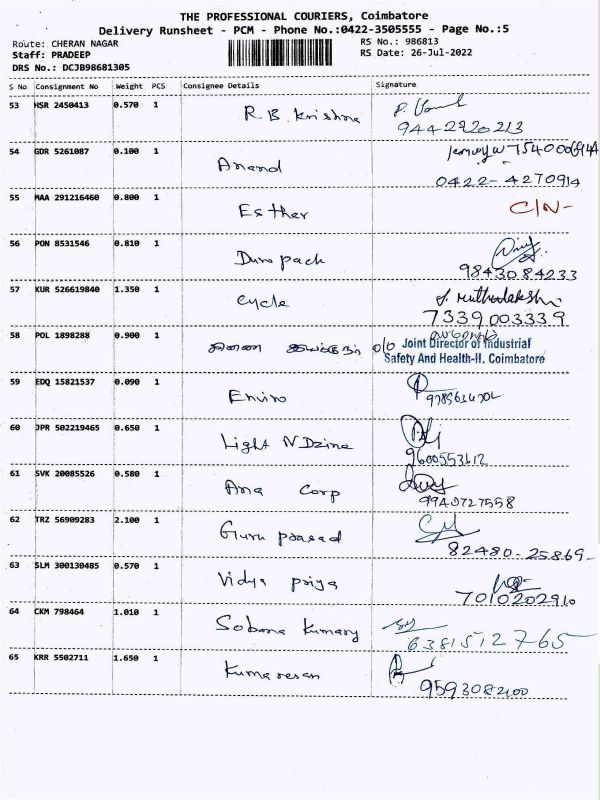 THE PROFESSIONAL COURIERS, Coimbatore
Delivery Runsheet - PCM - Phone No.:0422-3505555 - Page No.:5
Route: CHERAN NAGAR RS No.: 986813
Staff: PRADEEP RS Date: 26-Jul-2022
DRS No.: DCJB98681305
S No Consignment No Weight PCS Consignee Details Signature
53 HSR 2450413 0.570 1 R.B. Krishna
9442920213
54 GDR 5261087 0.100 1 Anand
0422-4270914
55 MAA 291216460 0.800 1 Esther C/N-
56 PON 8531546 0.810 1 Duro pack
9843084233
57 KUR 526619840 1.350 1 Cycle J. Muthulakshmi
7339003339
58 POL 1898288 0.900 1 இணை இயக்குநர் o/o Joint Director of Industrial
Safety And Health-II. Coimbatore
59 EDQ 15821537 0.090 1 Enviro
60 JPR 502219465 0.650 1 Light N Dzine
9600553612
61 SVK 20085526 0.580 1 Ana Corp
9940727558
62 TRZ 56909283 2.100 1 Guru prasad
82480-25869-
63 SLM 300130485 0.570 1 Vidya priya
7010202910
64 CKM 798464 1.010 1 Sobana Kumary
6381512765
65 KRR 5502711 1.650 1 Kumaresan
9593082100